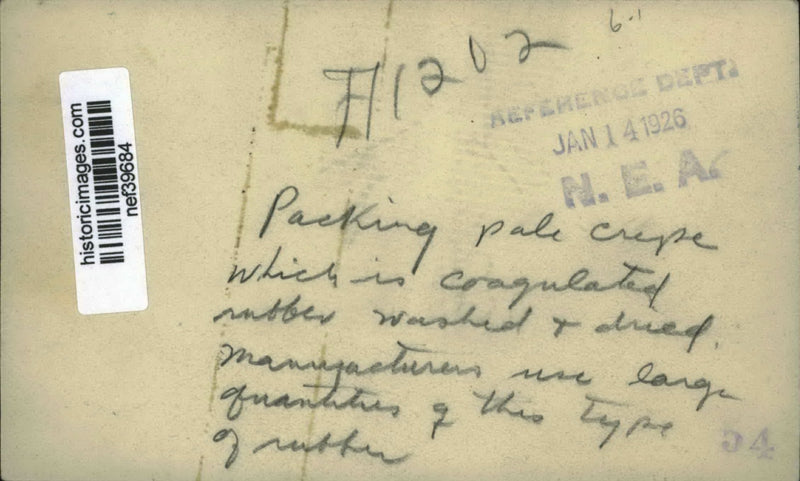 6-1
A1202
REFERENCE DEPT.
JAN 14 1926
N. E. A.
historicimages.com
nef39684
Packing pale crepe
which is coagulated
rubber washed + dried.
Manufacturers use large
quantities of this type
of rubber
54